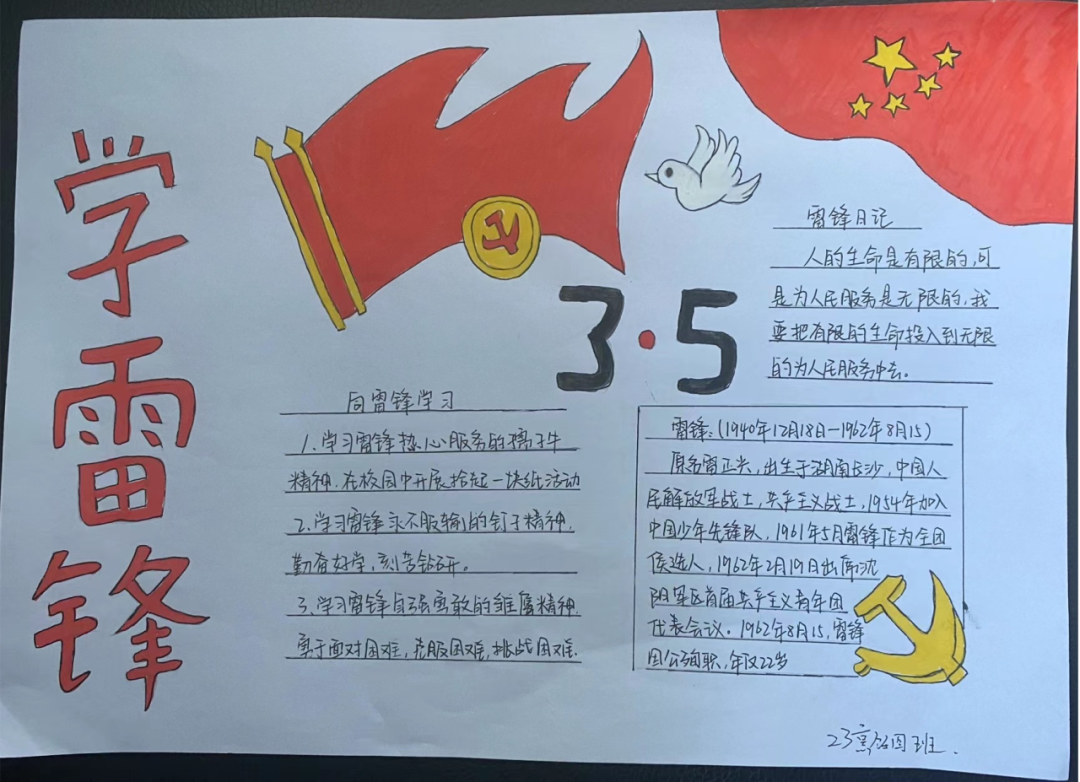 学雷锋
3·5
雷锋日记
人的生命是有限的,可
是为人民服务是无限的,我
要把有限的生命投入到无限
的为人民服务中去。
向雷锋学习
1.学习雷锋热心服务的孺子牛
精神.在校园中开展拾起一块纸活动
2.学习雷锋永不服输的钉子精神.
勤奋好学,刻苦钻研。
3.学习雷锋自强勇敢的雏鹰精神.
勇于面对困难,克服困难,挑战困难.
雷锋:(1940年12月18日—1962年8月15)
原名雷正兴,出生于湖南长沙,中国人
民解放军战士,共产主义战士,1954年加入
中国少年先锋队,1961年5月雷锋作为全团
候选人,1962年2月19日出席沈
阳军区首届共产主义青年团
代表会议。1962年8月15,雷锋
因公殉职,年仅22岁
23 班.